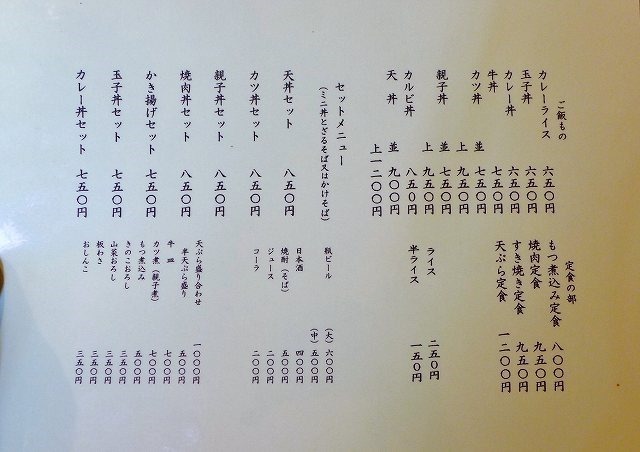 ご飯もの
カレーライス 六五〇円
玉子丼 六五〇円
カレー丼 六五〇円
牛丼 七五〇円
カツ丼 並 七五〇円
上 九五〇円
親子丼 並 七五〇円
上 九五〇円
カルビ丼 八五〇円
天丼 並 九〇〇円
上 一二〇〇円
定食の部
もつ煮込み定食 八〇〇円
焼肉定食 九五〇円
すき焼き定食 九五〇円
天ぷら定食 一二〇〇円
ライス 二五〇円
半ライス 一五〇円
セットメニュー
（ミニ丼とざるそば又はかけそば）
天丼セット 八五〇円
カツ丼セット 八五〇円
親子丼セット 八五〇円
焼肉丼セット 八五〇円
かき揚げセット 七五〇円
玉子丼セット 七五〇円
カレー丼セット 七五〇円
瓶ビール （大）六〇〇円
（中）五〇〇円
日本酒 四〇〇円
焼酎（そば） 五〇〇円
ジュース 二〇〇円
コーラ 二〇〇円
天ぷら盛り合わせ 一〇〇〇円
半天ぷら盛り 五〇〇円
牛皿 七〇〇円
カツ煮（親子煮） 七〇〇円
もつ煮込み 五〇〇円
きのこおろし 三五〇円
山菜おろし 三五〇円
板わさ 三五〇円
おしんこ 三五〇円